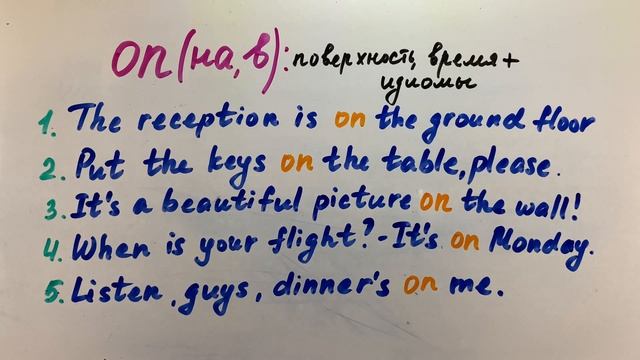 on (на, в): поверхность, время +
идиомы
1. The reception is on the ground floor
2. Put the keys on the table, please.
3. It's a beautiful picture on the wall!
4. When is your flight? - It's on Monday.
5. Listen, guys, dinner's on me.